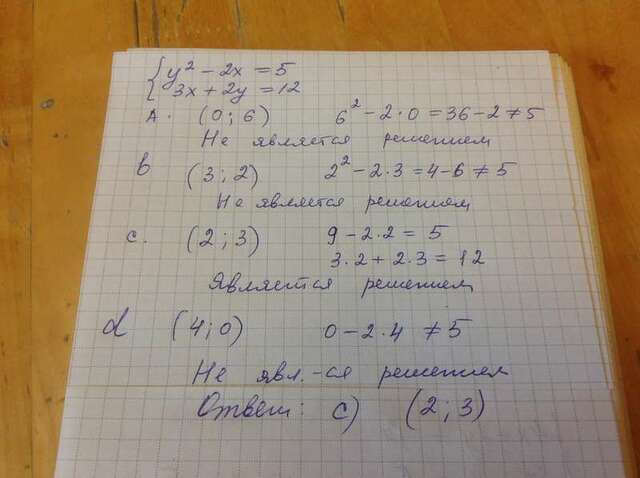 { y² − 2x = 5
3x + 2y = 12
A. (0; 6) 6² − 2·0 = 36 − 2 ≠ 5
Не является решением
b (3; 2) 2² − 2·3 = 4 − 6 ≠ 5
Не является решением
c. (2; 3) 9 − 2·2 = 5
3·2 + 2·3 = 12
Является решением
d (4; 0) 0 − 2·4 ≠ 5
Не явл.-ся решением
Ответ: c) (2; 3)